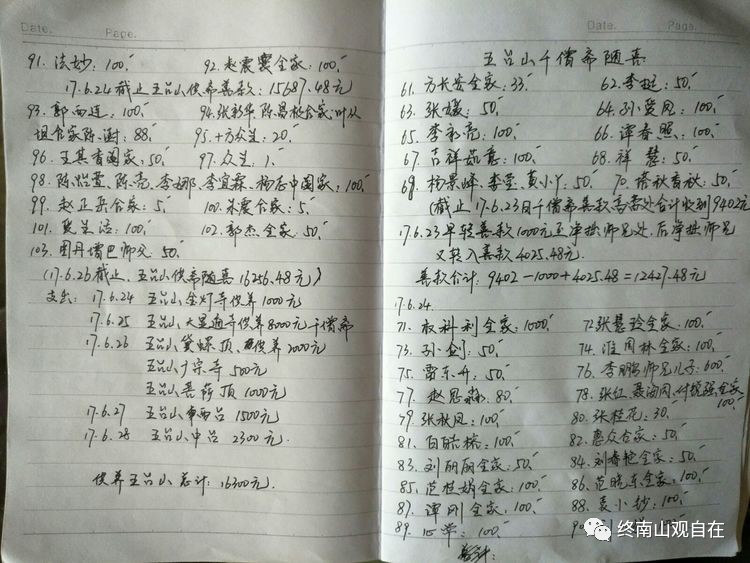 Date.          Page.
91. 法妙: 100,   92. 赵震寰全家: 100,
17.6.24截止五台山供斋善款: 15687.48元
93. 郭西连, 100,   94. 张彩华 陈昌 合家
合家陈 : 88,   95. 十方众生: 20,
96. 王其香阖家, 50,   97. 众生 1,
98. 陈怡萱、陈亮, 李娜, 李宜霖、杨 中阖家, 100,
99. 赵正岳合家: 5,   100. 朱震合家: 5,
101. 吴生活: 100,   102. 郭杰全家: 50,
103. 图丹增巴师父: 50,
(17.6.26截止, 五台山供斋随喜16256.48元)
支出: 17.6.24 五台山金灯寺供养1000元
17.6.25 五台山大显通寺供养8000元千僧斋
17.6.26 五台山黛螺顶, 供养2000元
五台山广宗寺 500元
五台山菩萨顶 1000元
17.6.27 五台山 西台 1500元
17.6.28 五台山中台 2300元.
供养五台山总计: 16300元.
Date.          Page.
五台山千僧斋随喜
61. 方长安全家: 33,   62. 李挺: 50,
63. 张媛: 50,   64. 孙爱凤: 100,
65. 李 : 100,   66. 谭春照: 100,
67. 吉祥如意: 100,   68. 祥慧: 50,
69. 杨景峰、李莹、黄小丫: 50,   70. 秋香秋: 50,
(截止17.6.23日千僧斋善款 处合计收到9402元
17.6.23早转善款1000元至净 师兄处, 后净 师兄
又转入善款4025.48元.
善款合计: 9402-1000+4025.48=12427.48元
17.6.24.
71. 权科利全家: 1000,   72. 张慧玲全家: 100,
73. 孙剑: 50,   74. 淮周林全家: 100,
75. 雷东升: 50,   76. 李鹏师兄儿子: 600,
77. 赵思 : 80,   78. 张红、聂海网、付 强全家 100,
79. 张秋凤: 100,   80. 张桂花: 30,
81. 白皓榕: 100,   82. 惠众合家: 50,
83. 刘丽丽全家: 50,   84. 刘春艳全家: 50,
85. 范桂娟全家: 100,   86. 范晓东全家: 100,
87. 谭刚全家: 100,   88. 袁小妙: 100,
89. 心学: 100,   90.
总计:
终南山观自在